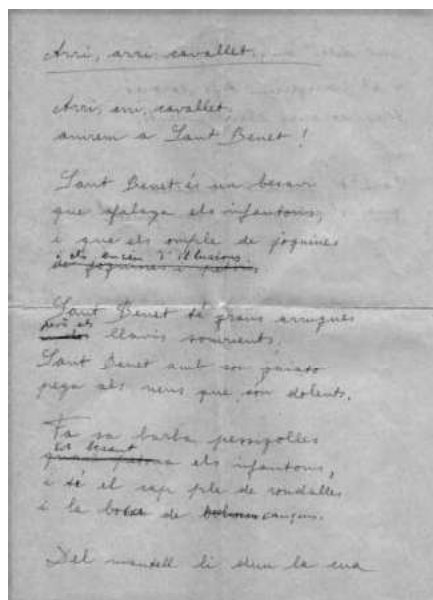 Arri, arri, cavallet.
Arri, arri, cavallet,
anirem a Sant Benet!
Sant Benet és un besavi
que afalaga els infantons,
i que els omple de joguines
i els encén d'il·lusions.
de joguines i petons
Sant Benet té grans arrugues
però els
llavis somrients.
Sant Benet amb son gaiato
pega als nens que son dolents.
Fa sa barba pessigolles
tot besant
a els infantons,
i té el cap ple de rondalles
i la boca de cançons.
Del mantell li duen la cua